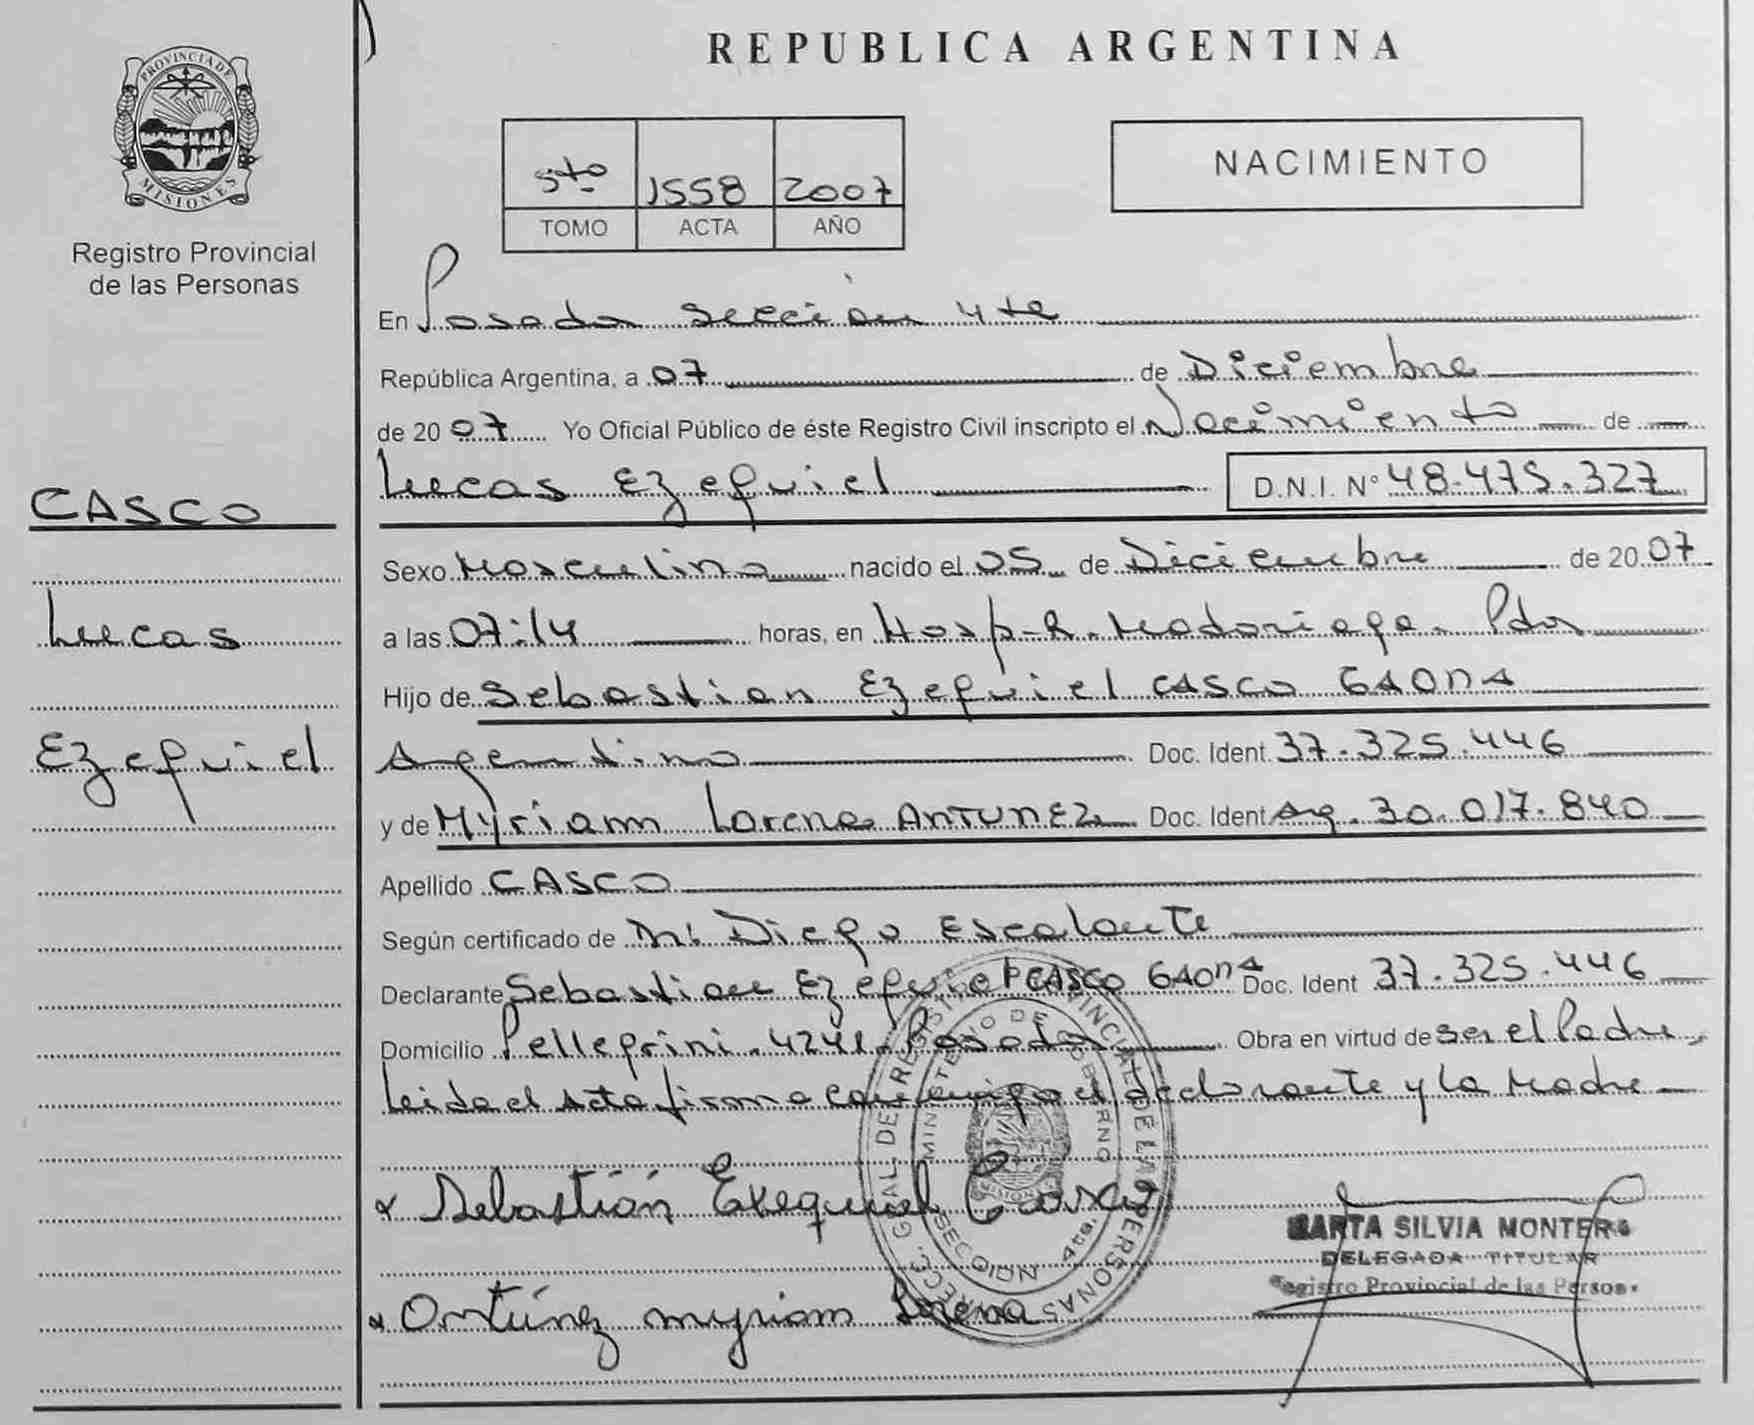 PROVINCIA DE
MISIONES
Registro Provincial
de las Personas
CASCO
Lucas
Ezequiel
REPUBLICA ARGENTINA
5to 1558 2007
TOMO ACTA AÑO
NACIMIENTO
En Posadas Sección 4ta
República Argentina, a 07 de Diciembre
de 2007 Yo Oficial Público de éste Registro Civil inscripto el Nacimiento de
Lucas Ezequiel D.N.I. N° 48.475.327
Sexo Masculino nacido el 05 de Diciembre de 2007
a las 07:14 horas, en Hosp-R. Madariaga. Pdas
Hijo de Sebastian Ezequiel CASCO GAONA
Argentino Doc. Ident. 37.325.446
y de Myriam Lorena ANTUNEZ Doc. Ident Arg. 30.017.840
Apellido CASCO
Según certificado de Diego Escalante
Declarante Sebastian Ezequiel CASCO GAONA Doc. Ident 37.325.446
Domicilio Pellegrini. 4241. Posadas Obra en virtud de ser el Padre,
Leida el Acta firma conmigo el declarante y la Madre
Sebastián Exequiel Casco
Antúnez myriam Lorena
MINISTERIO DE GOBIERNO
MISIONES
SECCION 4ta.
MARTA SILVIA MONTERO
DELEGADA TITULAR
Registro Provincial de las Person